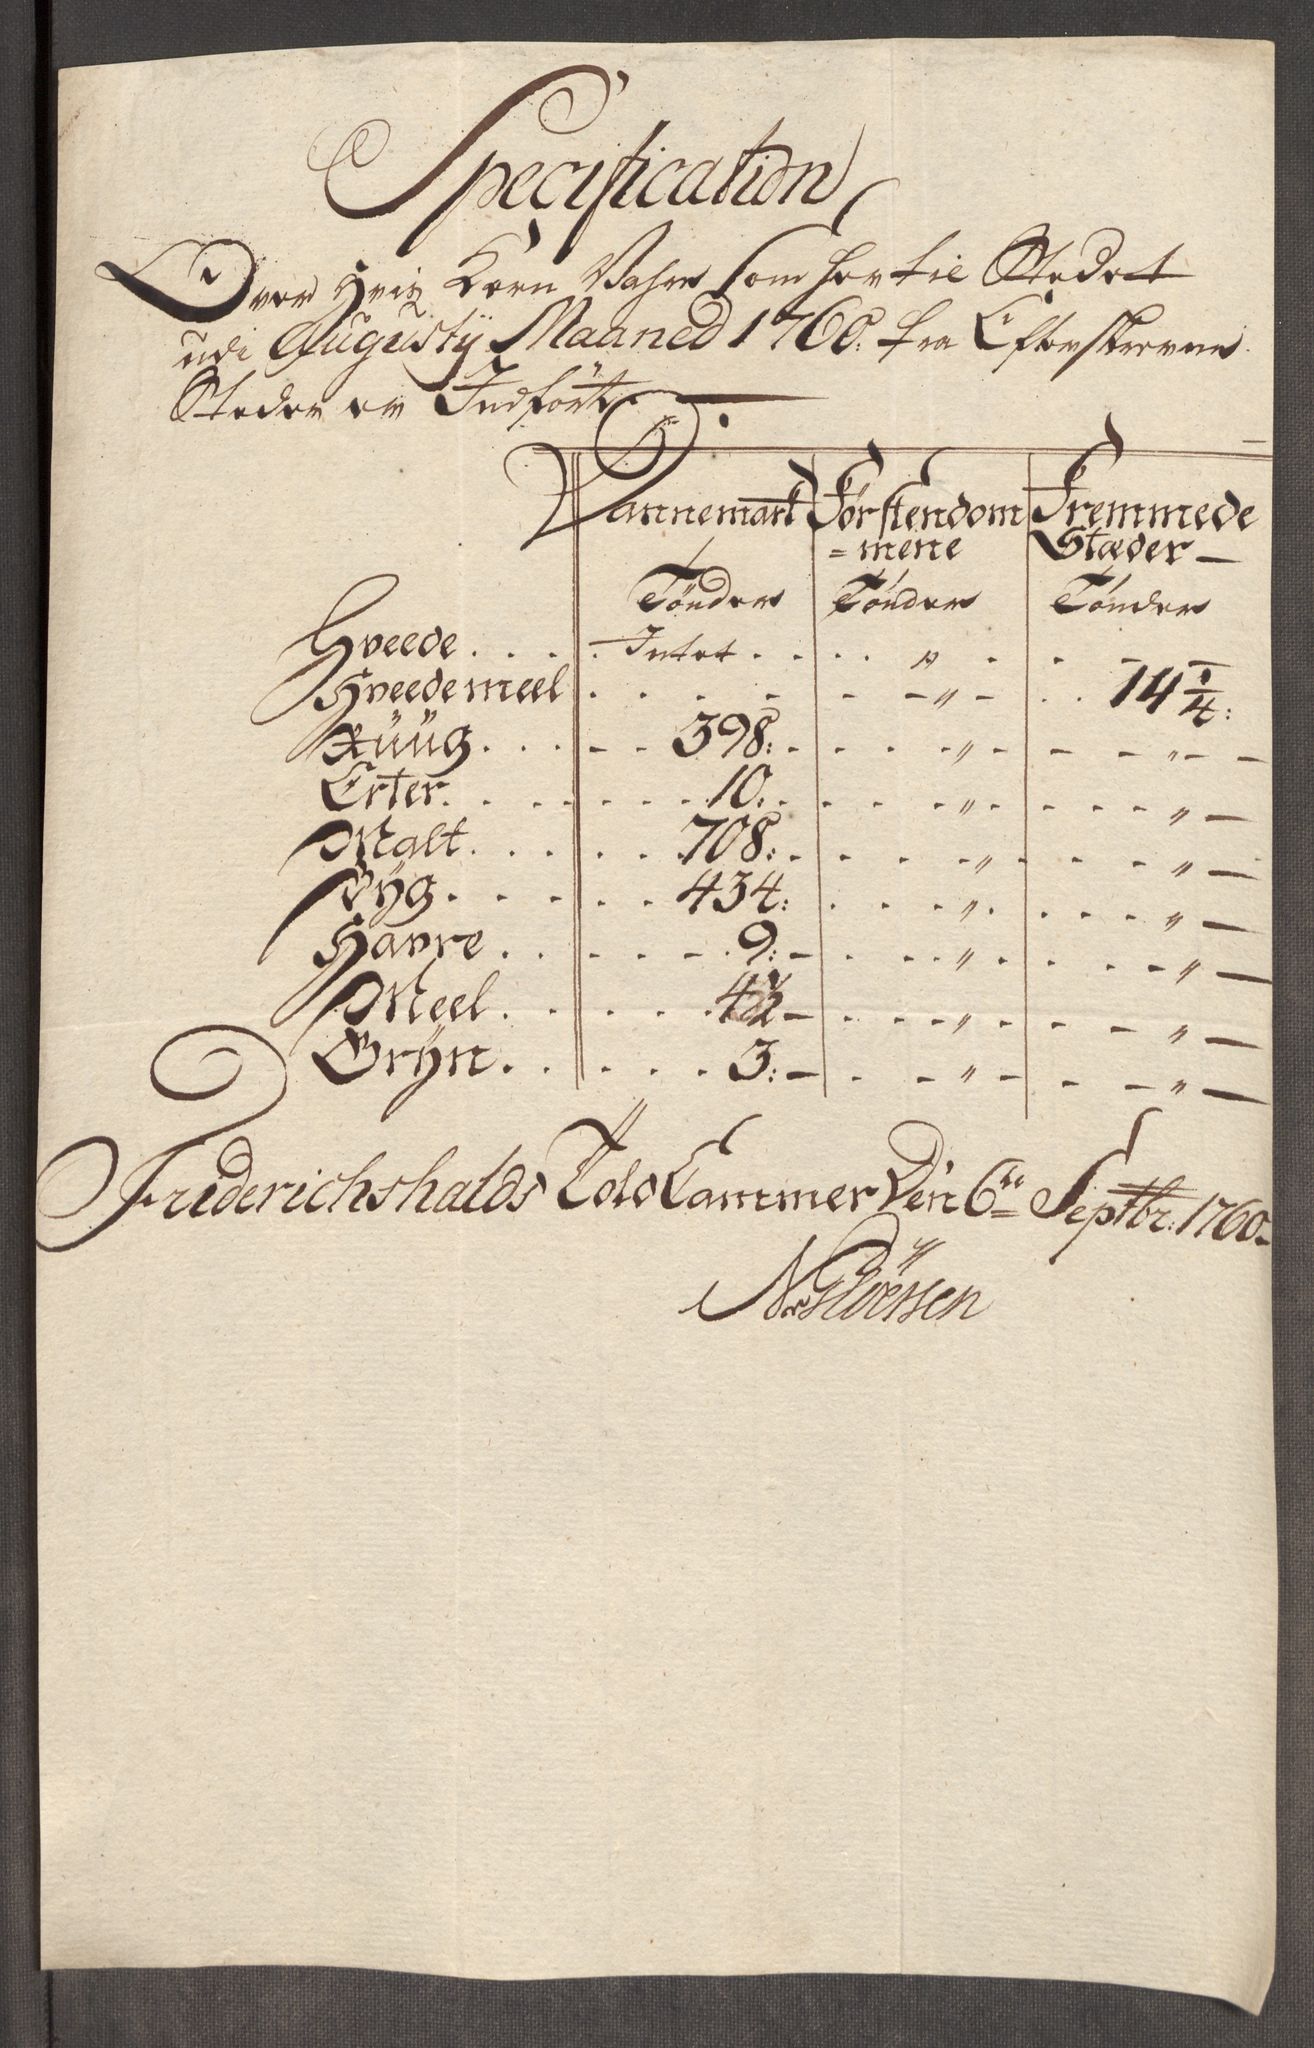 Specification
Over Hvis Korn Vahre som her til Stedet
udi Augustÿ Maaned 1760. fra Efterskrevne
Steder er Indført.
Dannemark Førstendom Fremmede
=mene Stæder —
Tönder Tönder Tönder
Hveede . . . . Intet . . . . " . . - -
Hveedemeel . . . . . - - " - . . 14 1/4:
Rüüg . . . - - 398: - - - - " - - - " - -
Erter . . . . . . . 10. . . . . " . . - - - " -
Malt . . . . . . 708: . . - - " - - - " -
Bÿg . . . . . . 434: . . . - " . . . - - " -
Havre . . . - - - 9: - . . - - " . . . - - " -
Meel . . . . . . 4 1/2 - . . - - " - . - - " -
Grÿn . . . . . . 3: - . - " - . - " -
Friderichshalds Told Cammer Den 6te Septbr: 1760 -